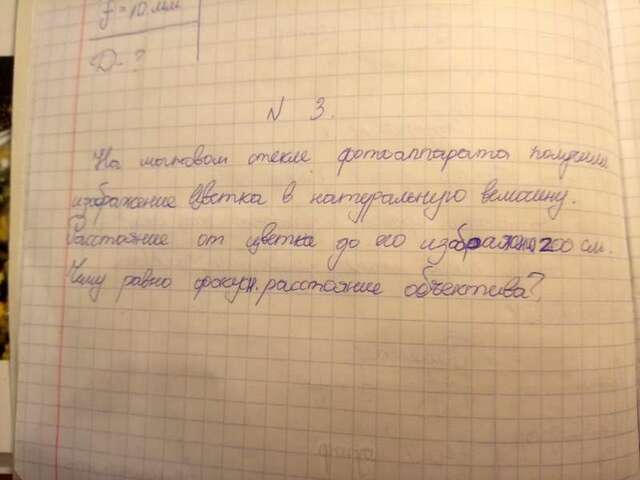 f = 10 мм
D - ?
N 3.
На матовом стекле фотоаппарата получили
изображение цветка в натуральную величину.
Расстояние от цветка до его изображения 200 см.
Чему равно фокусн. расстояние объектива?